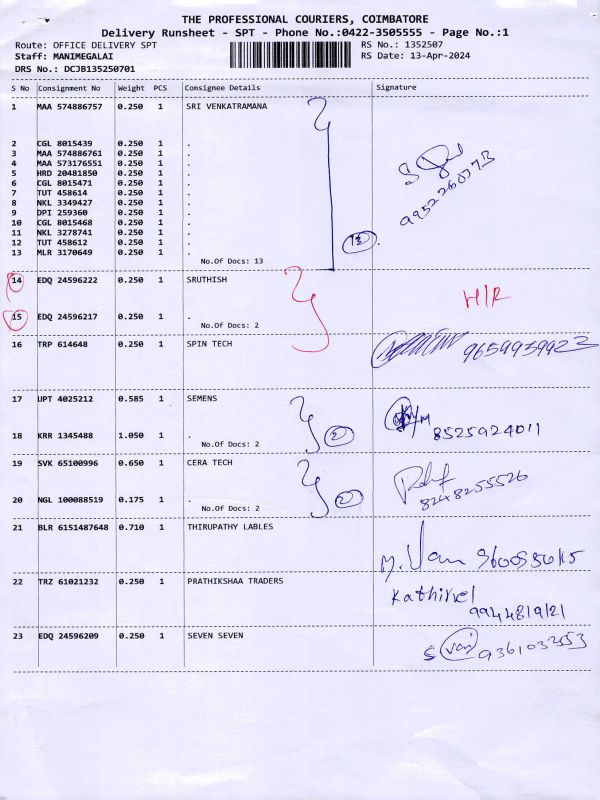 THE PROFESSIONAL COURIERS, COIMBATORE
Delivery Runsheet - SPT - Phone No.:0422-3505555 - Page No.:1
Route: OFFICE DELIVERY SPT RS No.: 1352507
Staff: MANIMEGALAI RS Date: 13-Apr-2024
DRS No.: DCJB135250701
S No Consignment No Weight PCS Consignee Details Signature
1 MAA 574886757 0.250 1 SRI VENKATRAMANA
2 CGL 8015439 0.250 1 .
3 MAA 574886761 0.250 1 .
4 MAA 573176551 0.250 1 .
5 HRD 20481850 0.250 1 .
6 CGL 8015471 0.250 1 .
7 TUT 458614 0.250 1 .
8 NKL 3349427 0.250 1 .
9 DPI 259360 0.250 1 .
10 CGL 8015468 0.250 1 .
11 NKL 3278741 0.250 1 .
12 TUT 458612 0.250 1 .
13 MLR 3170649 0.250 1 .
No.Of Docs: 13
9952260773
14 EDQ 24596222 0.250 1 SRUTHISH
H/R
15 EDQ 24596217 0.250 1 .
No.Of Docs: 2
16 TRP 614648 0.250 1 SPIN TECH 9659939923
17 UPT 4025212 0.585 1 SEMENS
18 KRR 1345488 1.050 1 . 2 8525924011
No.Of Docs: 2
19 SVK 65100996 0.650 1 CERA TECH
20 NGL 100088519 0.175 1 . 2 8248255526
No.Of Docs: 2
21 BLR 6151487648 0.710 1 THIRUPATHY LABLES
22 TRZ 61021232 0.250 1 PRATHIKSHAA TRADERS Kathirvel
9944819121
23 EDQ 24596209 0.250 1 SEVEN SEVEN 9361033553